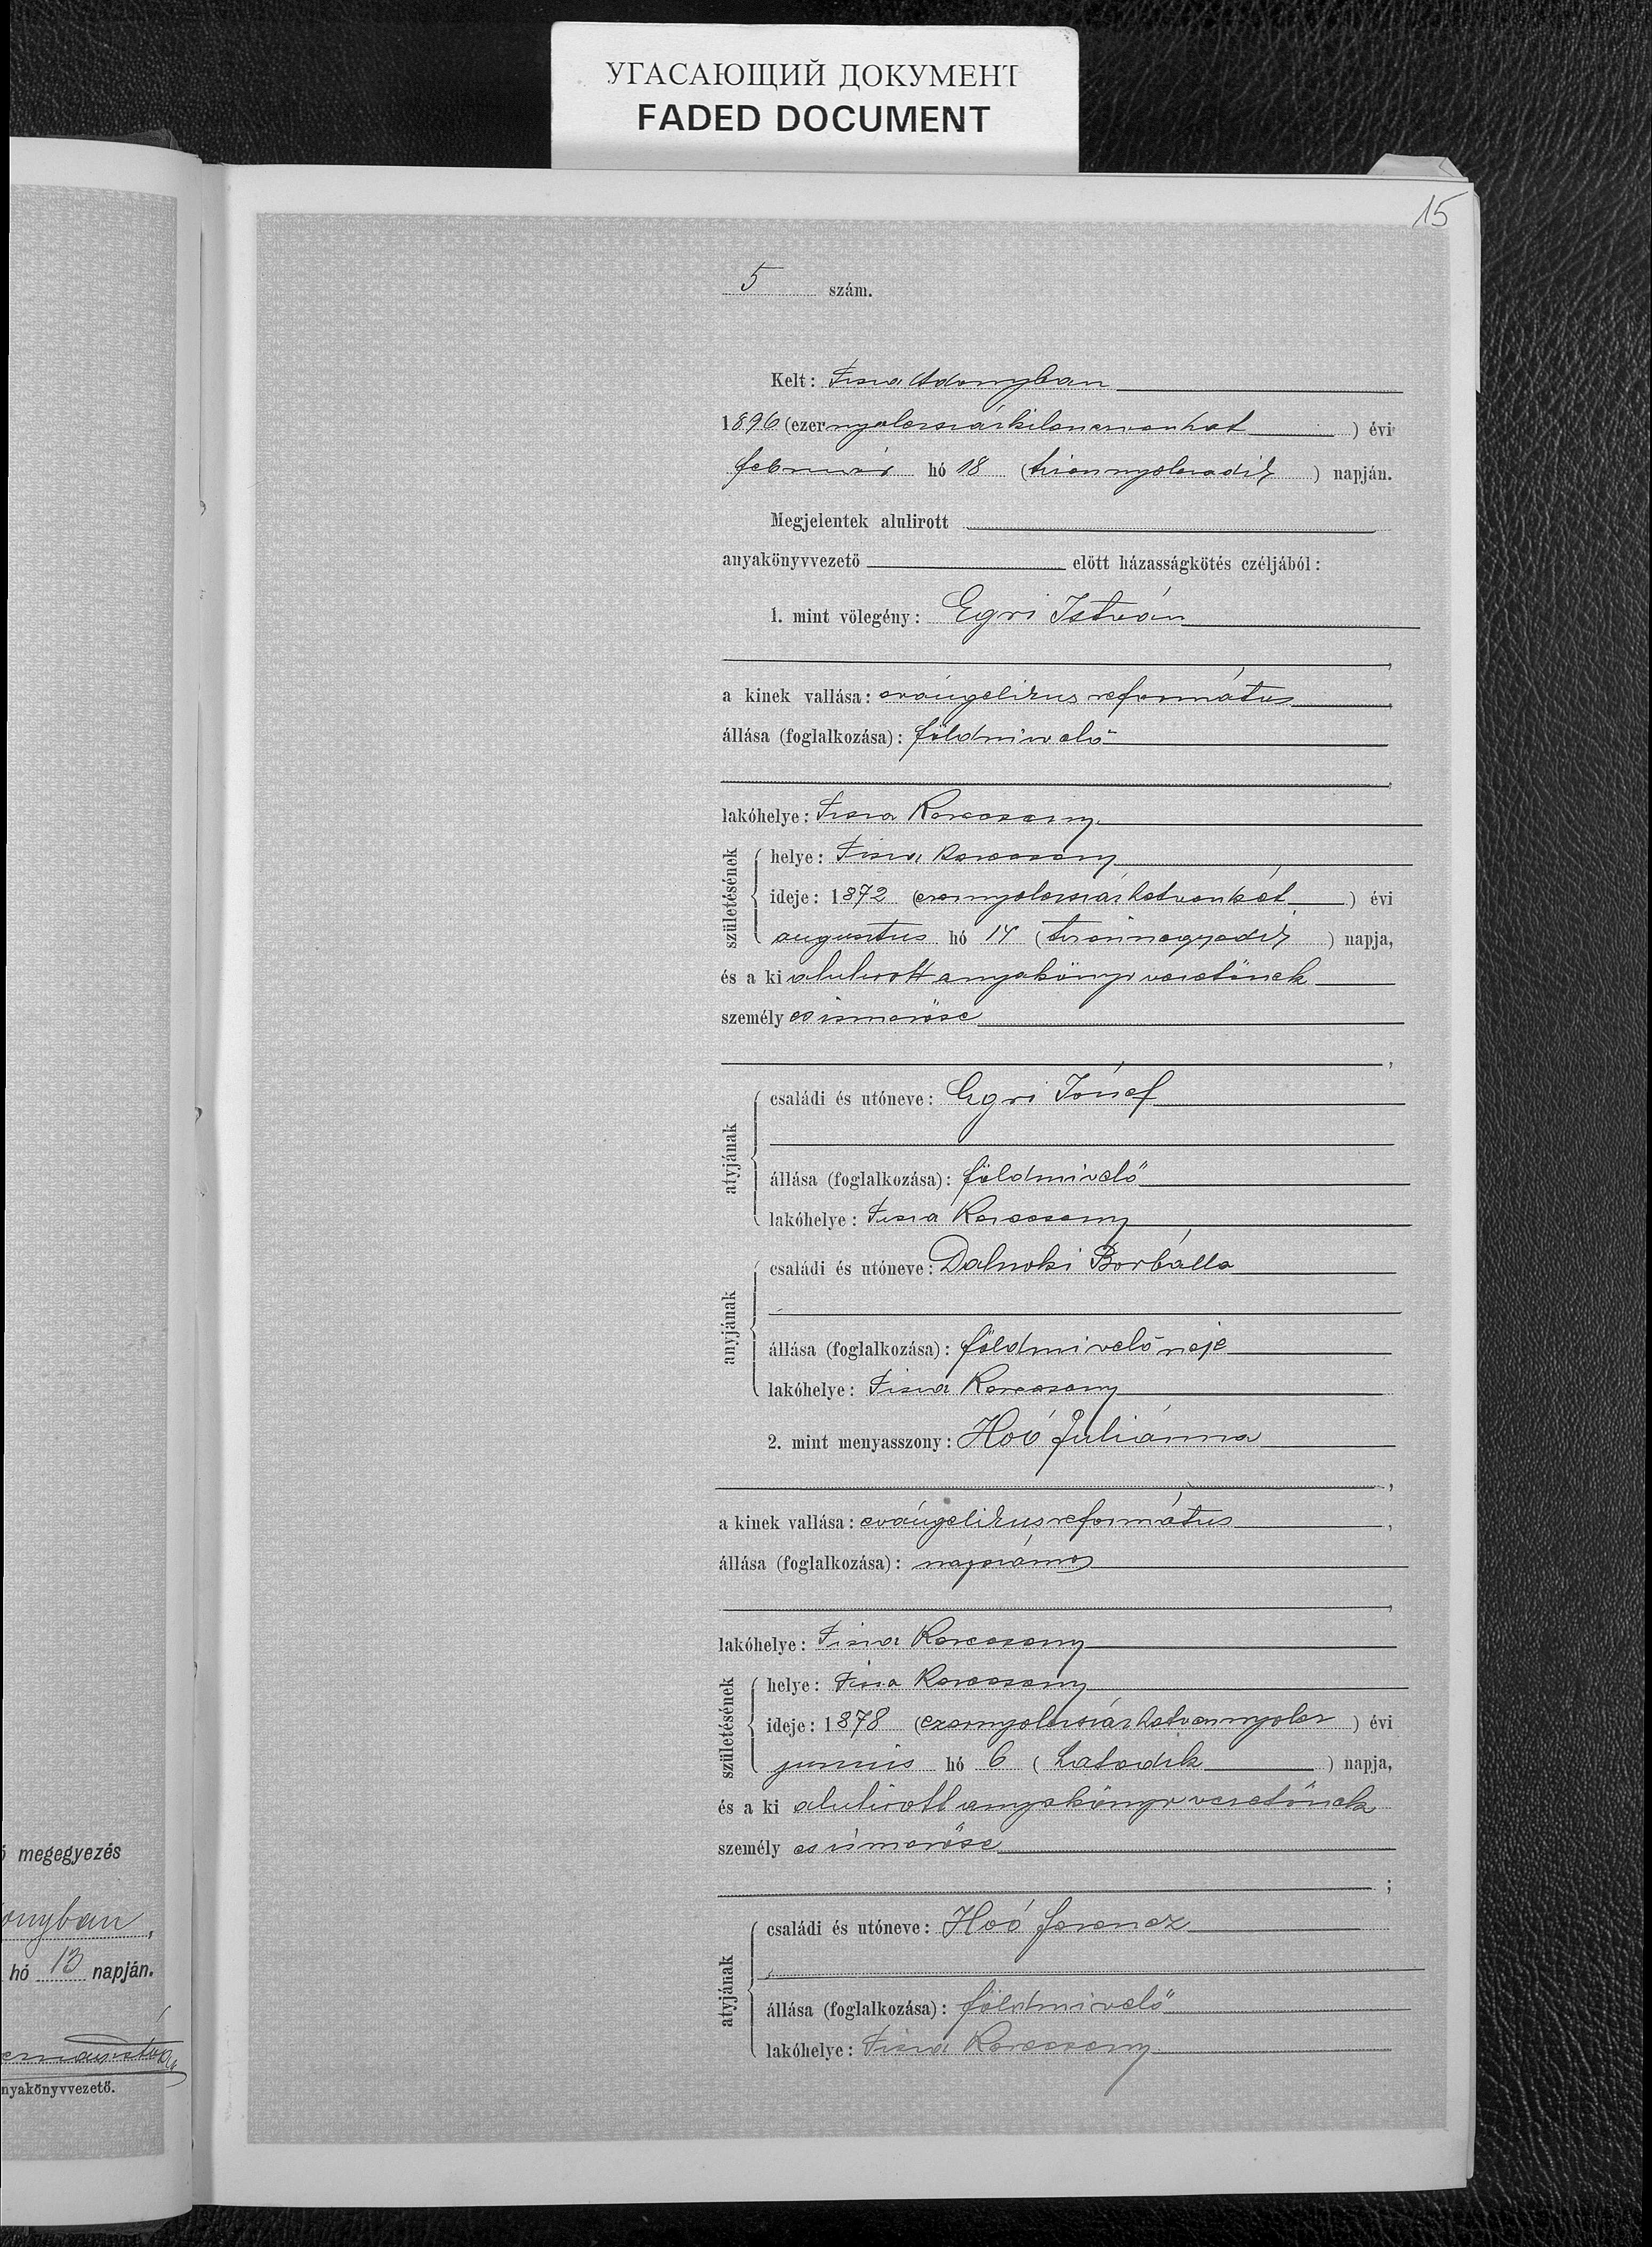 УГАСАЮЩИЙ ДОКУМЕНТ
FADED DOCUMENT
15
5 szám.
Kelt: Tisza Adonyban
1896 (ezernyolcszázkilenczvenhat) évi
február hó 18 (tizennyolczadik) napján.
Megjelentek alulirott
anyakönyvvezető előtt házasságkötés czéljából:
1. mint vőlegény: Egri István
a kinek vallása: evángelikus református,
állása (foglalkozása): földmivelő
lakóhelye: Tisza Karacsony
születésének
helye: Tisza Karacsony
ideje: 1872 (ezernyolcszázhetvenkét) évi
augusztus hó 14 (tizennegyedik) napja,
és a ki alulirott anyakönyvvezetőnek
személyes ismerőse,
atyjának
családi és utóneve: Egri József
állása (foglalkozása): földmivelő
lakóhelye: Tisza Karacsony
anyjának
családi és utóneve: Dalnoki Borbálla
állása (foglalkozása): földmivelő neje
lakóhelye: Tisza Karacsony
2. mint menyasszony: Hoó Juliánna,
a kinek vallása: evángelikus református,
állása (foglalkozása): napszámos,
lakóhelye: Tisza Karacsony
születésének
helye: Tisza Karacsony
ideje: 1878 (ezernyolcszázhetvennyolcz) évi
junius hó 6 (hatodik) napja,
és a ki alulirott anyakönyvvezetőnek
személyes ismerőse;
atyjának
családi és utóneve: Hoó Ferencz
állása (foglalkozása): földmivelő
lakóhelye: Tisza Karacsony
ó megegyezés
onyban,
hó 13 napján.
nyakönyvvezető.